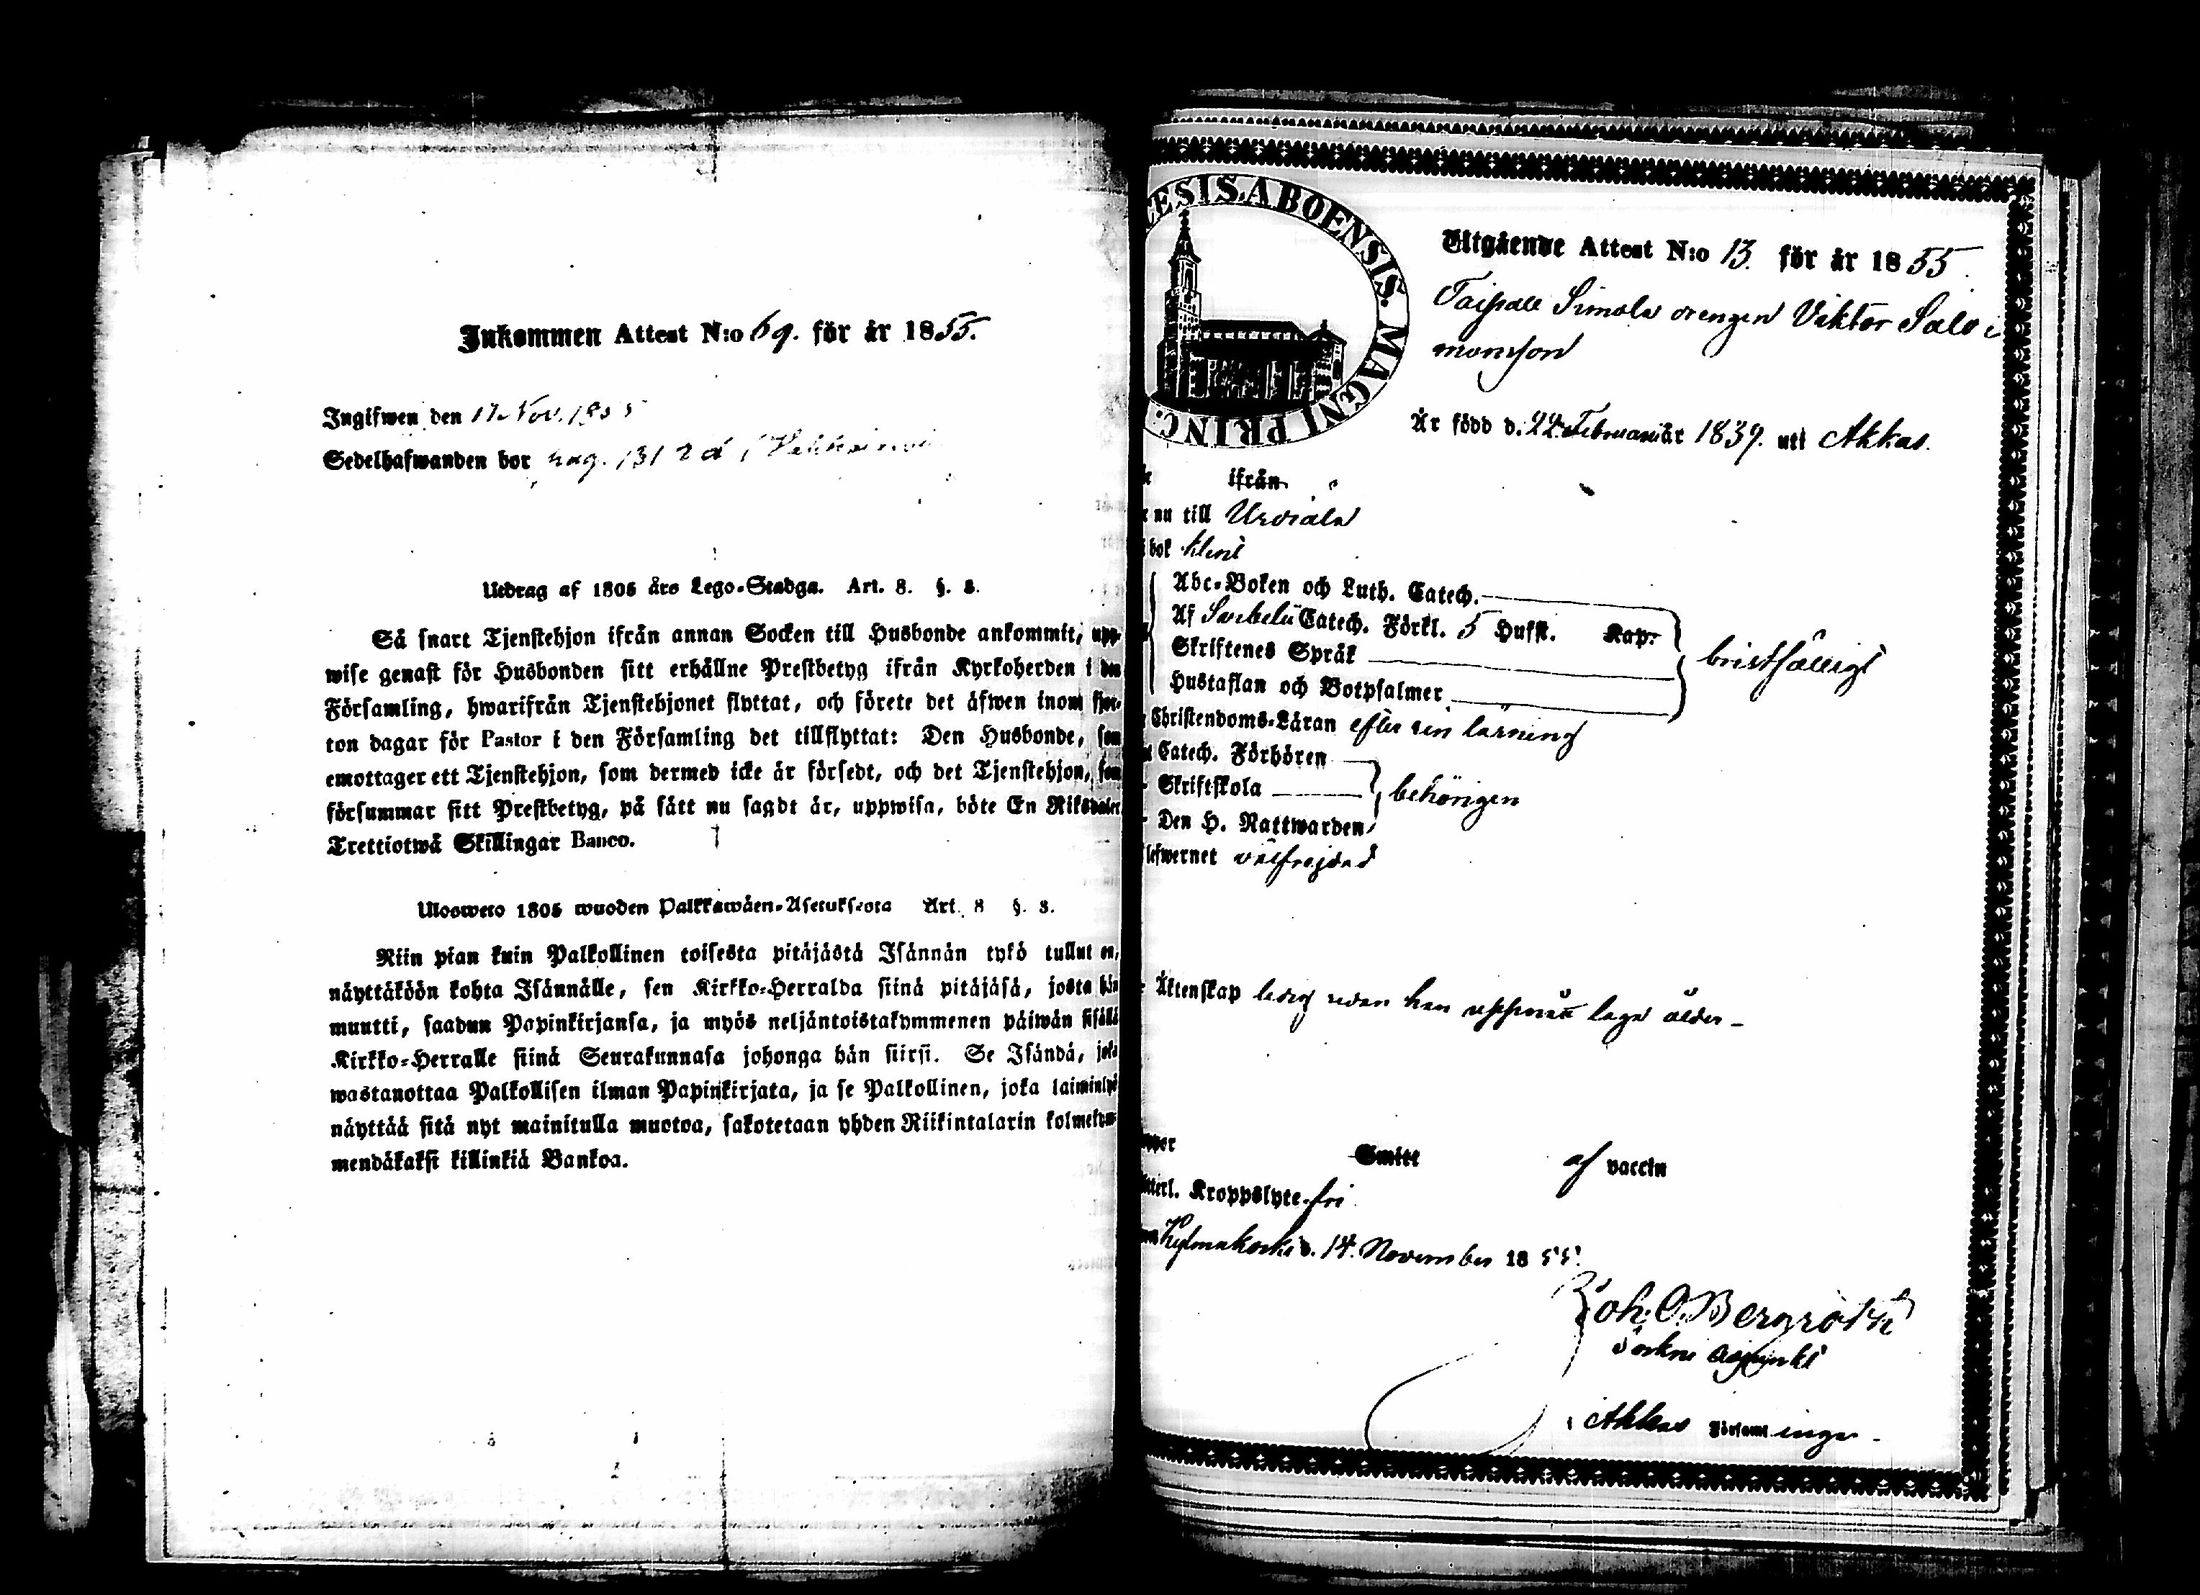 Inkommen Attest N:o 69. för år 1855.
Ingifwen den 17 Nov. 1855
Sedelhafwanden bor pag. 131
Utdrag af 1805 års Lego-Stadga. Art. 8. §. 8.
Så snart Tjenstehjon ifrån annan Socken till Husbonde ankommit, upp-
wise genast för Husbonden sitt erhållne Prestbetyg ifrån Kyrkoherden i den
Församling, hwarifrån Tjenstehjonet flyttat, och förete det äfwen inom fjor-
ton dagar för Pastor i den Församling det tillflyttat: Den Husbonde, som
emottager ett Tjenstehjon, som dermed icke är försedt, och det Tjenstehjon, som
försummar sitt Prestbetyg, på sätt nu sagdt är, uppwisa, böte En Riksdaler
Trettiotwå Skillingar Banco.
Ulosweto 1805 wuoden Palkkawäen-Asetuksesta Art. 8 §. 8.
Niin pian kuin Palkollinen toisesta pitäjästä Isännän tykö tullut on,
näyttäköön kohta Isännälle, sen Kirkko-Herralda siinä pitäjäsä, josta hän
muutti, saadun Papinkirjansa, ja myös neljäntoistakymmenen päiwän sisällä
Kirkko-Herralle siinä Seurakunnasa johonga hän siirsi. Se Isändä, joka
wastanottaa Palkollisen ilman Papinkirjata, ja se Palkollinen, joka laiminlyö
näyttää sitä nyt mainitulla muotoa, sakotetaan yhden Riikintalarin kolmekym-
mendäkaksi killinkiä Bankoa.
ESIS. ABOENSIS. MAGNI PRINC.
Utgående Attest N:o 13. för år 1855.
Taipale Simola drengen Viktor Salo
monsson
Är född d. 22 Februari år 1839. uti Akkas.
ifrån
nu till Urdiala
bok klent
Abc-Boken och Luth. Catech.
Af Svebelii Catech. Förkl. 5 Hufst. Kap.
Skriftenes Språk
Hustaflan och Botpsalmer
bristfälligt
Christendoms-Läran efter sin lärning
Catech. Förhören
Skriftskola
behörigen
Den H. Nattwarden
lefwernet välfrejdad
Äktenskap ledig sedan han uppnått laga ålder
Smitt af vaccin
Kroppslyte fri
Kylmäkoski d. 14. November 1855.
Joh: O. Bergroth
Sockne Adjunkt
i Akkas Församlingar